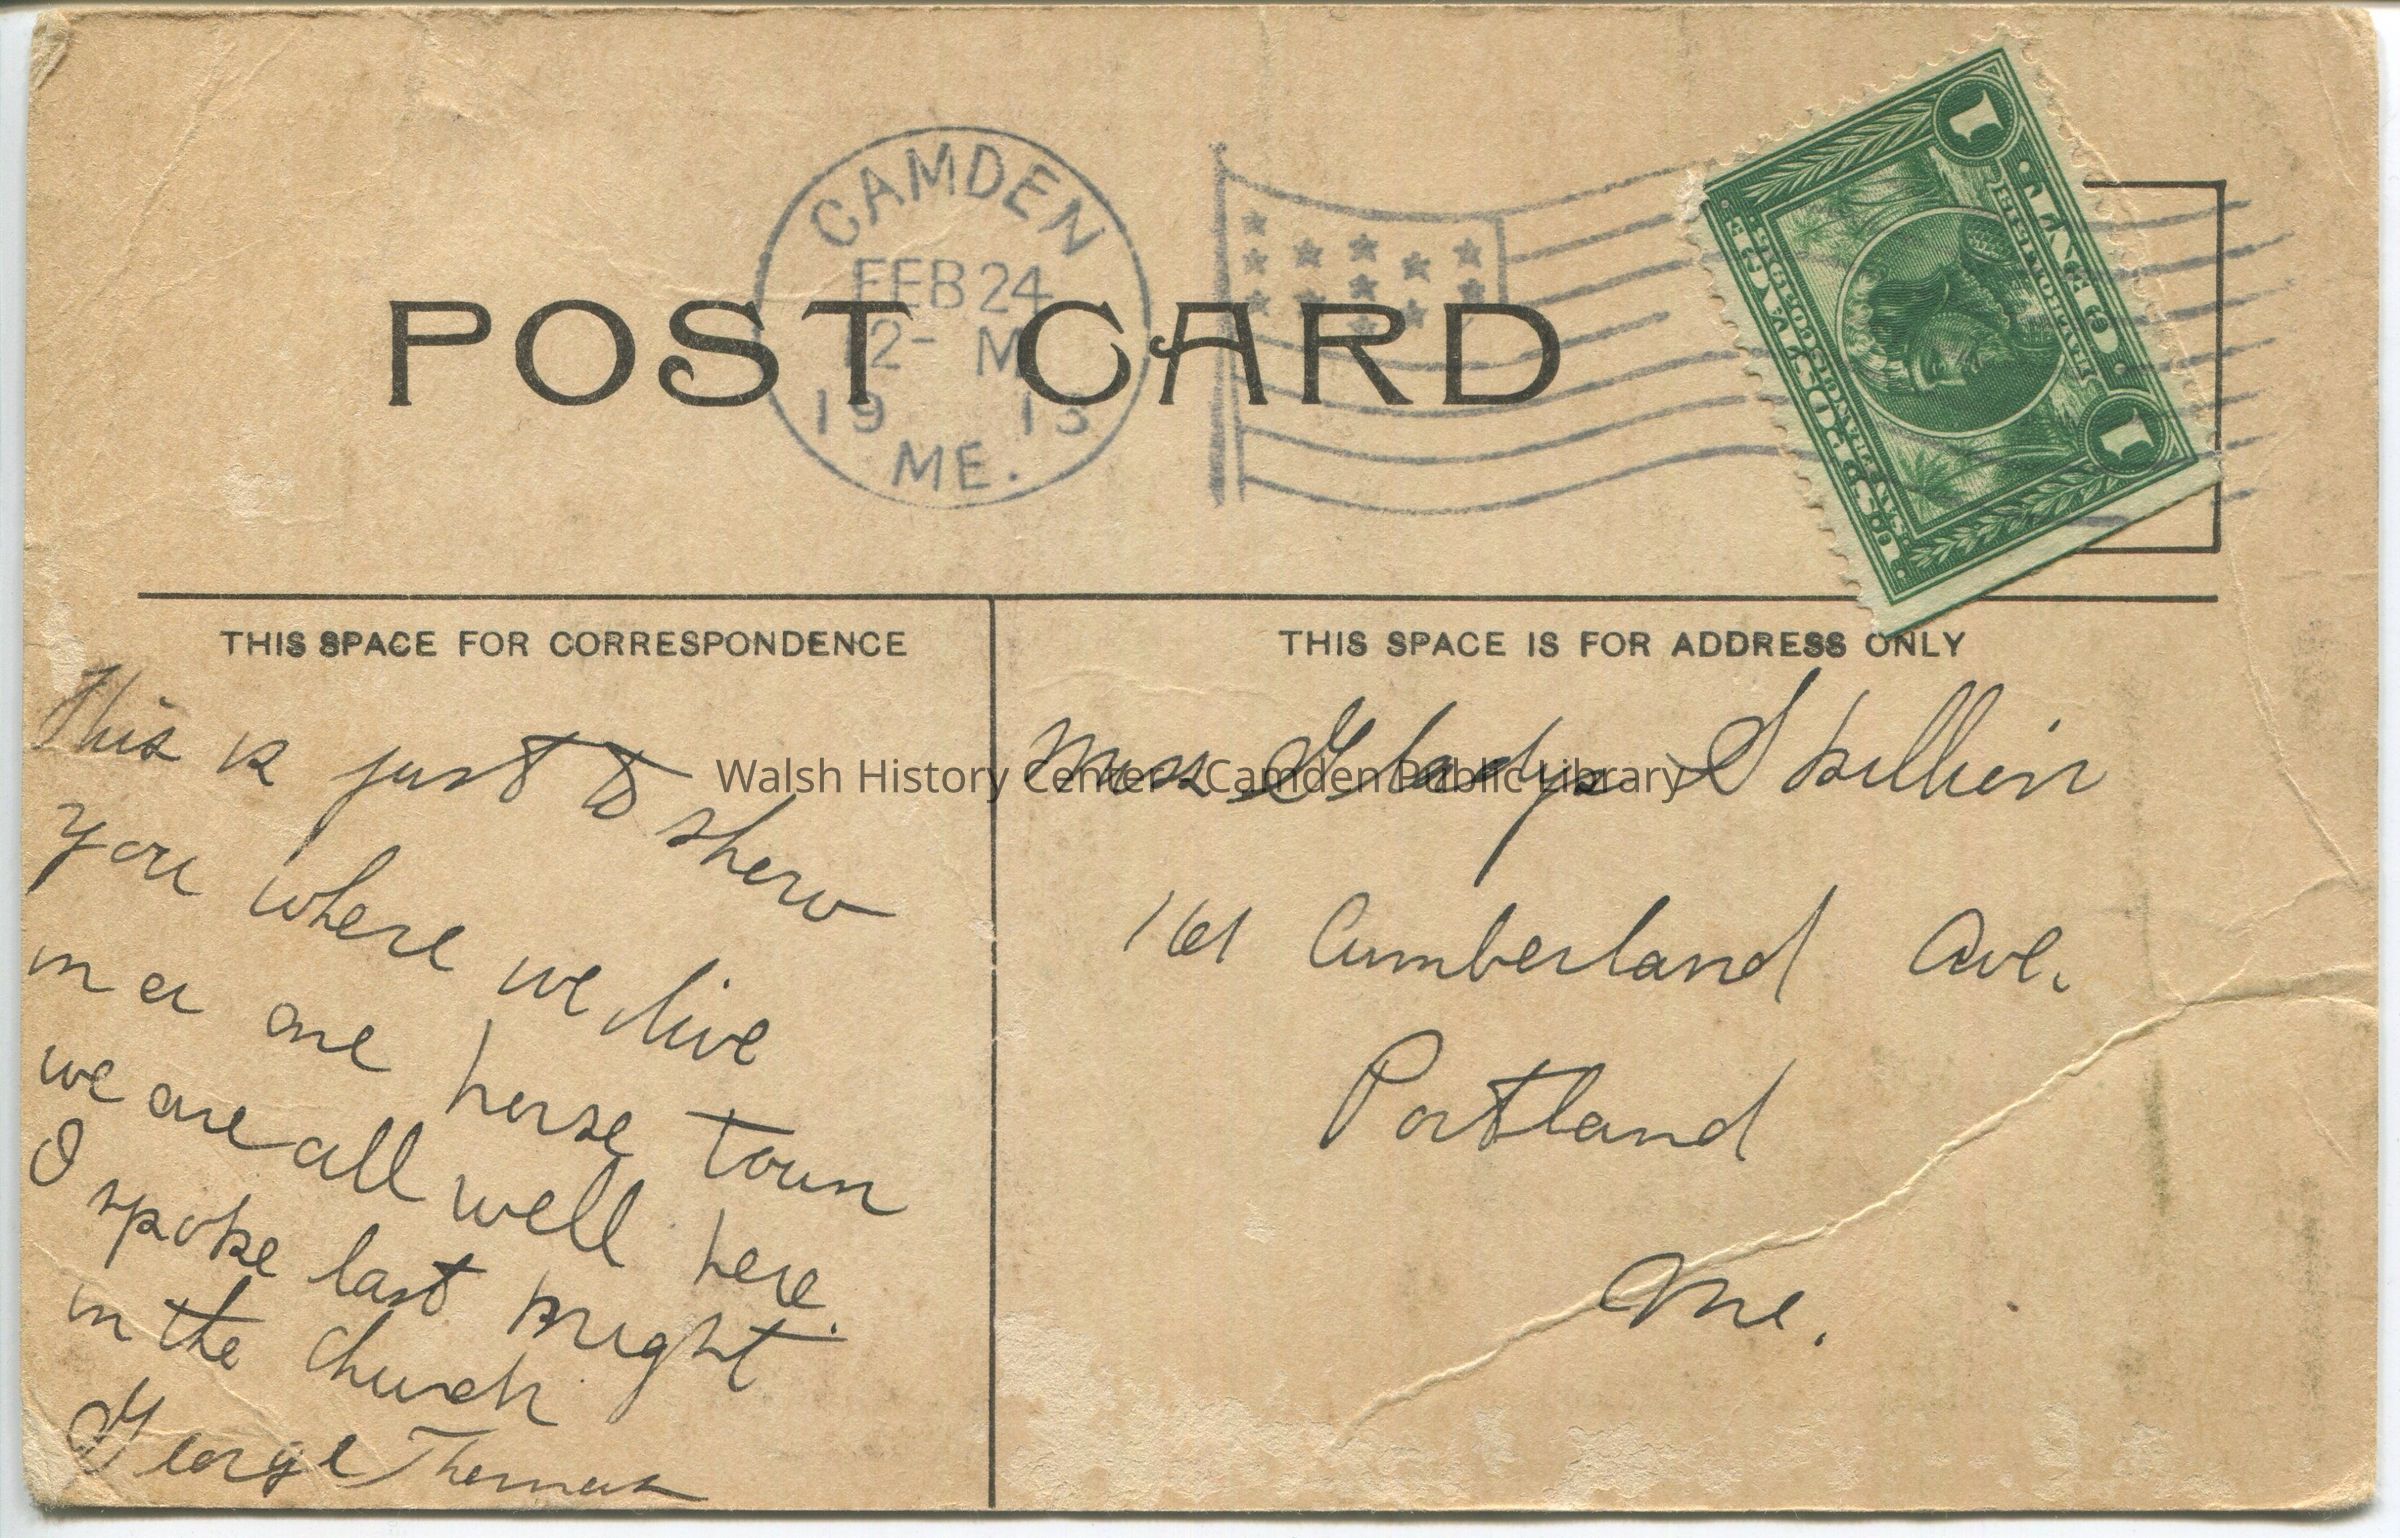 CAMDEN
FEB 24
12- M
19 13
ME.
POST CARD
1 CENT 1
BALBOA 1513
SAN FRANCISCO 1915
U.S. POSTAGE
THIS SPACE FOR CORRESPONDENCE
This is just to show
you where we live
in a one horse town
we are all well here.
I spoke last night
in the church
George Thomas
THIS SPACE IS FOR ADDRESS ONLY
Miss Gladys Skillin
161 Cumberland Ave.
Portland
Me.
Walsh History Center /Camden Public Library